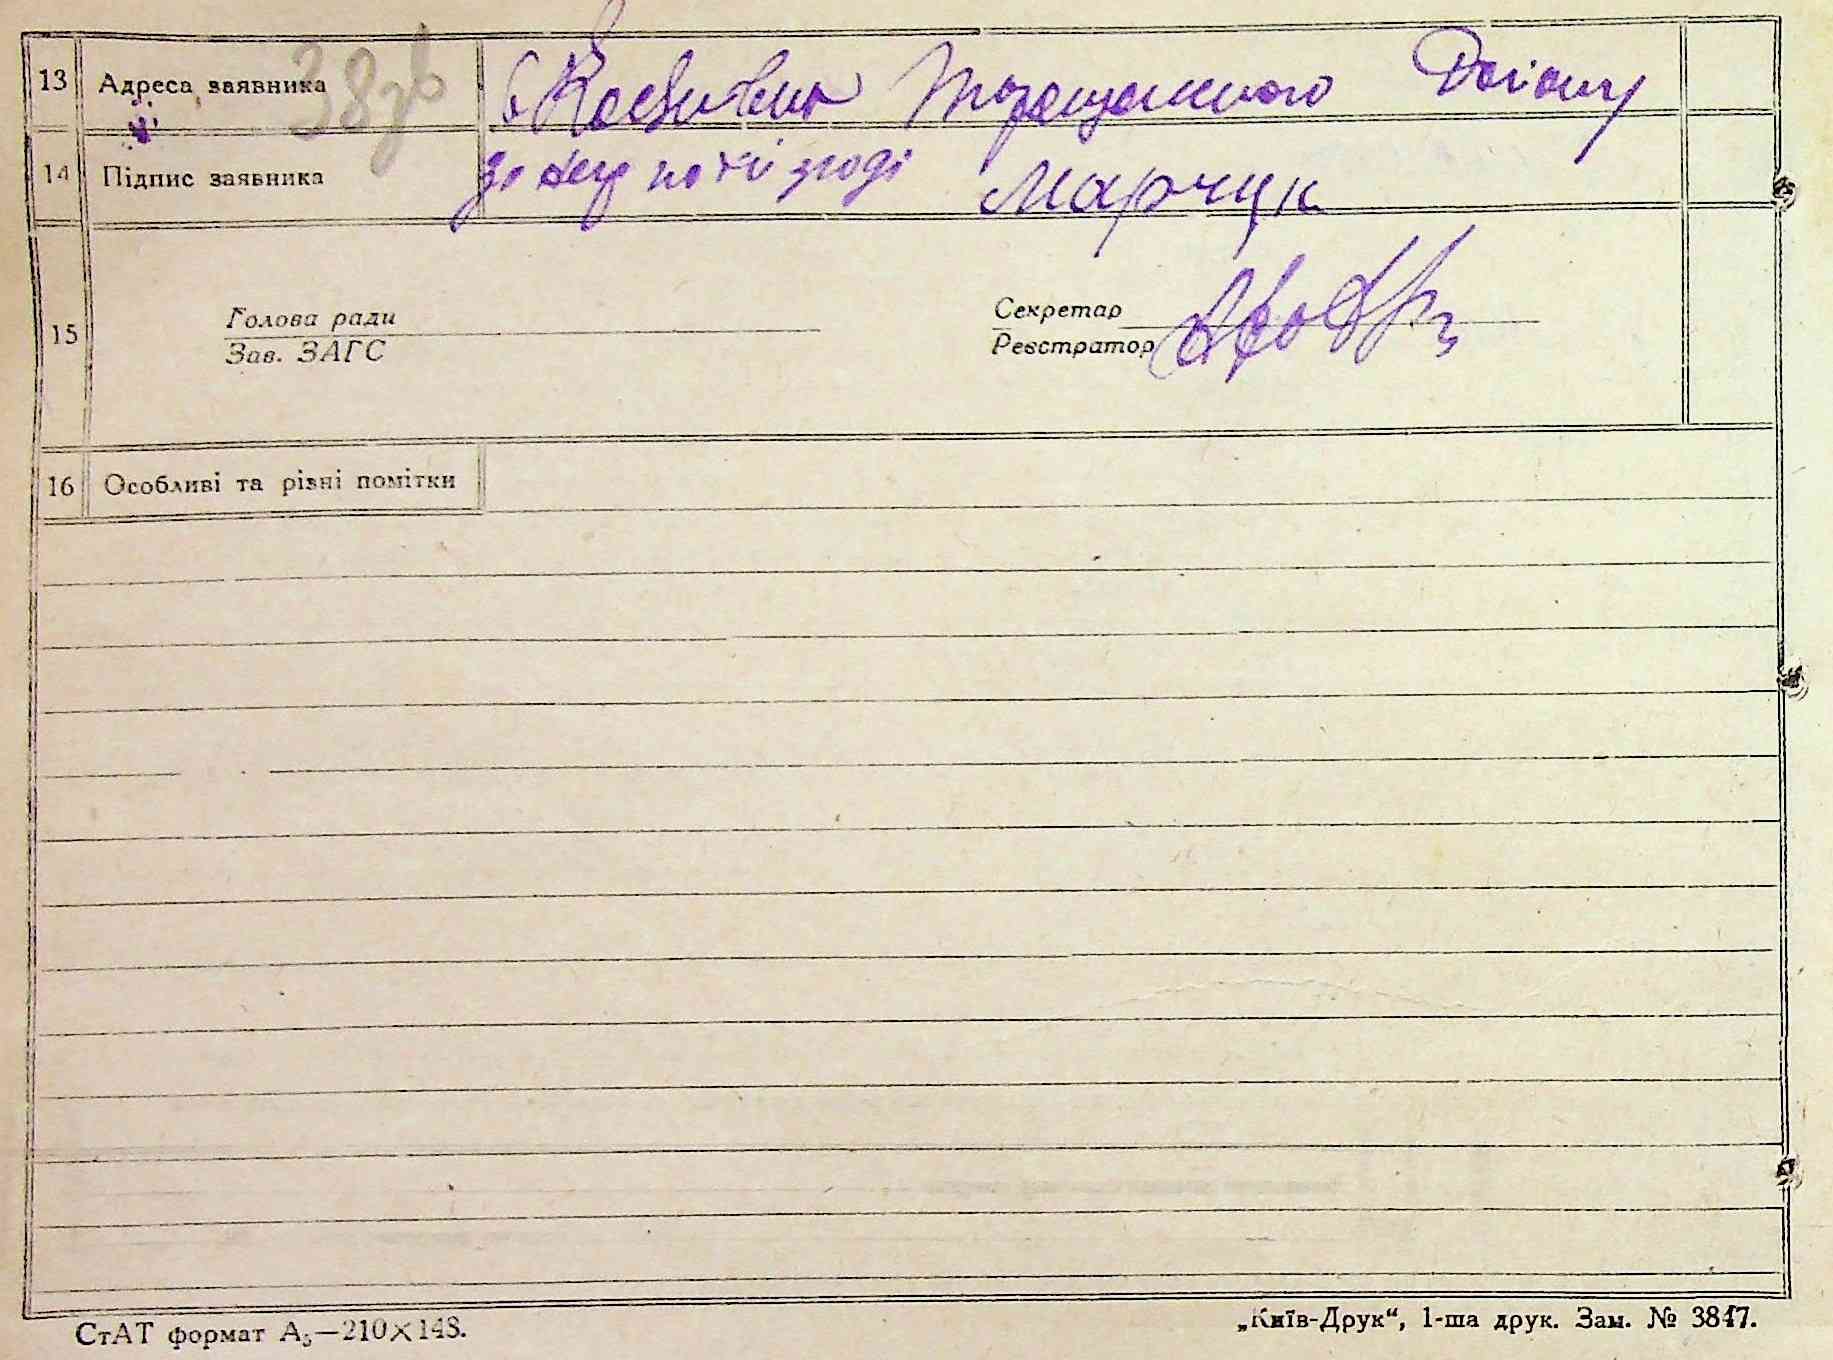 13 Адреса заявника Таращанського Району
14 Підпис заявника згоді Марчук
15
Голова ради
Зав. ЗАГС
Секретар
Реєстратор
16 Особливі та різні помітки
СтАТ формат А₅—210×148.
„Київ-Друк“, 1-ша друк. Зам. № 3847.